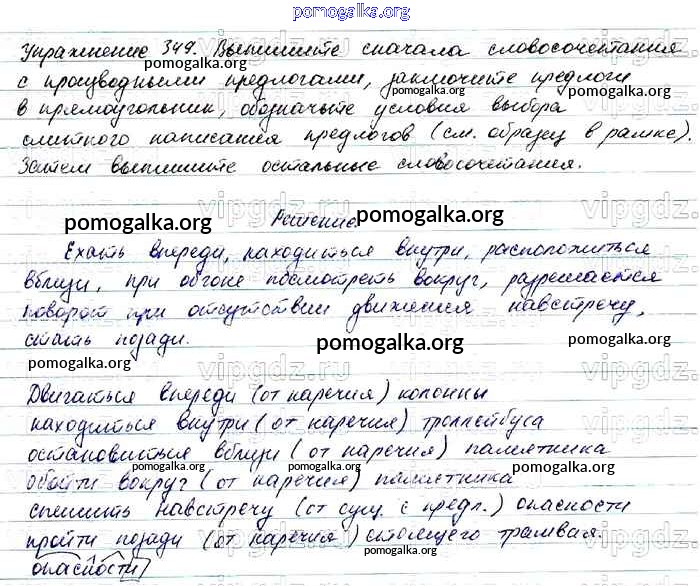 pomogalka.org
Упражнение 349. Выпишите сначала словосочетания
с производными предлогами, заключите предлоги
в прямоугольник, обозначьте условия выбора
слитного написания предлогов (см. образец в рамке).
Затем выпишите остальные словосочетания.
Решение
pomogalka.org pomogalka.org
Ехать впереди, находиться внутри, расположиться
вблизи, при обгоне посмотреть вокруг, разрешается
поворот при отсутствии движения навстречу,
стать позади.
pomogalka.org pomogalka.org pomogalka.org
Двигаться впереди (от наречия) колонны
находиться внутри (от наречия) троллейбуса
остановиться вблизи (от наречия) памятника
pomogalka.org pomogalka.org pomogalka.org
обойти вокруг (от наречия) памятника
спешить навстречу (от сущ. с предл.) опасности
пройти позади (от наречия) стоящего трамвая.
pomogalka.org pomogalka.org
опасности
vipgdz.ru vipgdz.ru vipgdz.ru